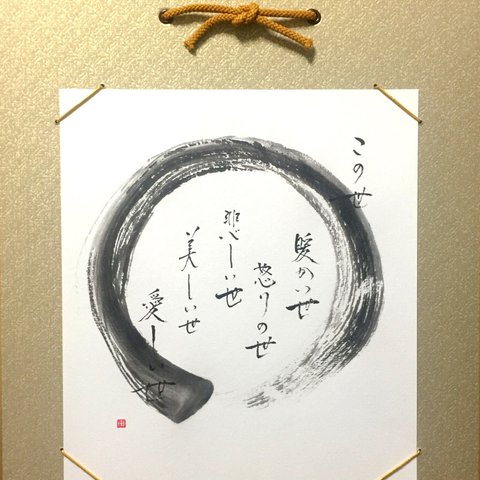 この世
暖かい世
怒りの世
悲しい世
美しい世
愛しい世